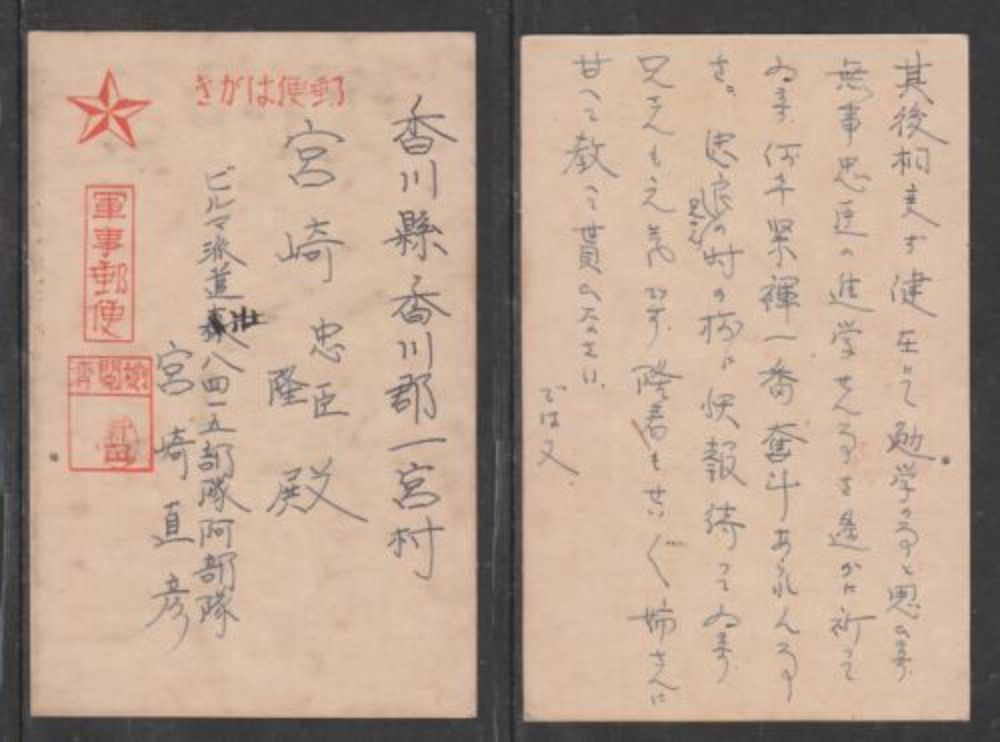 郵便はがき
軍事郵便
検閲済
香川縣香川郡一宮村
宮崎忠臣
隆
殿
ビルマ派遣 壯八四一五部隊阿部隊
宮崎直彦
其後相変ず健在にて勉学の事と思ひます
無事忠臣の進学せん事を遥かに祈って
ゐます、何卒緊褌一番奮斗あらん事
を。忠良の時の様に快報待ってゐます
兄さんも元気です。隆君もせいぐ姉さんに
甘へて教へて貰ひなさい、
では又、